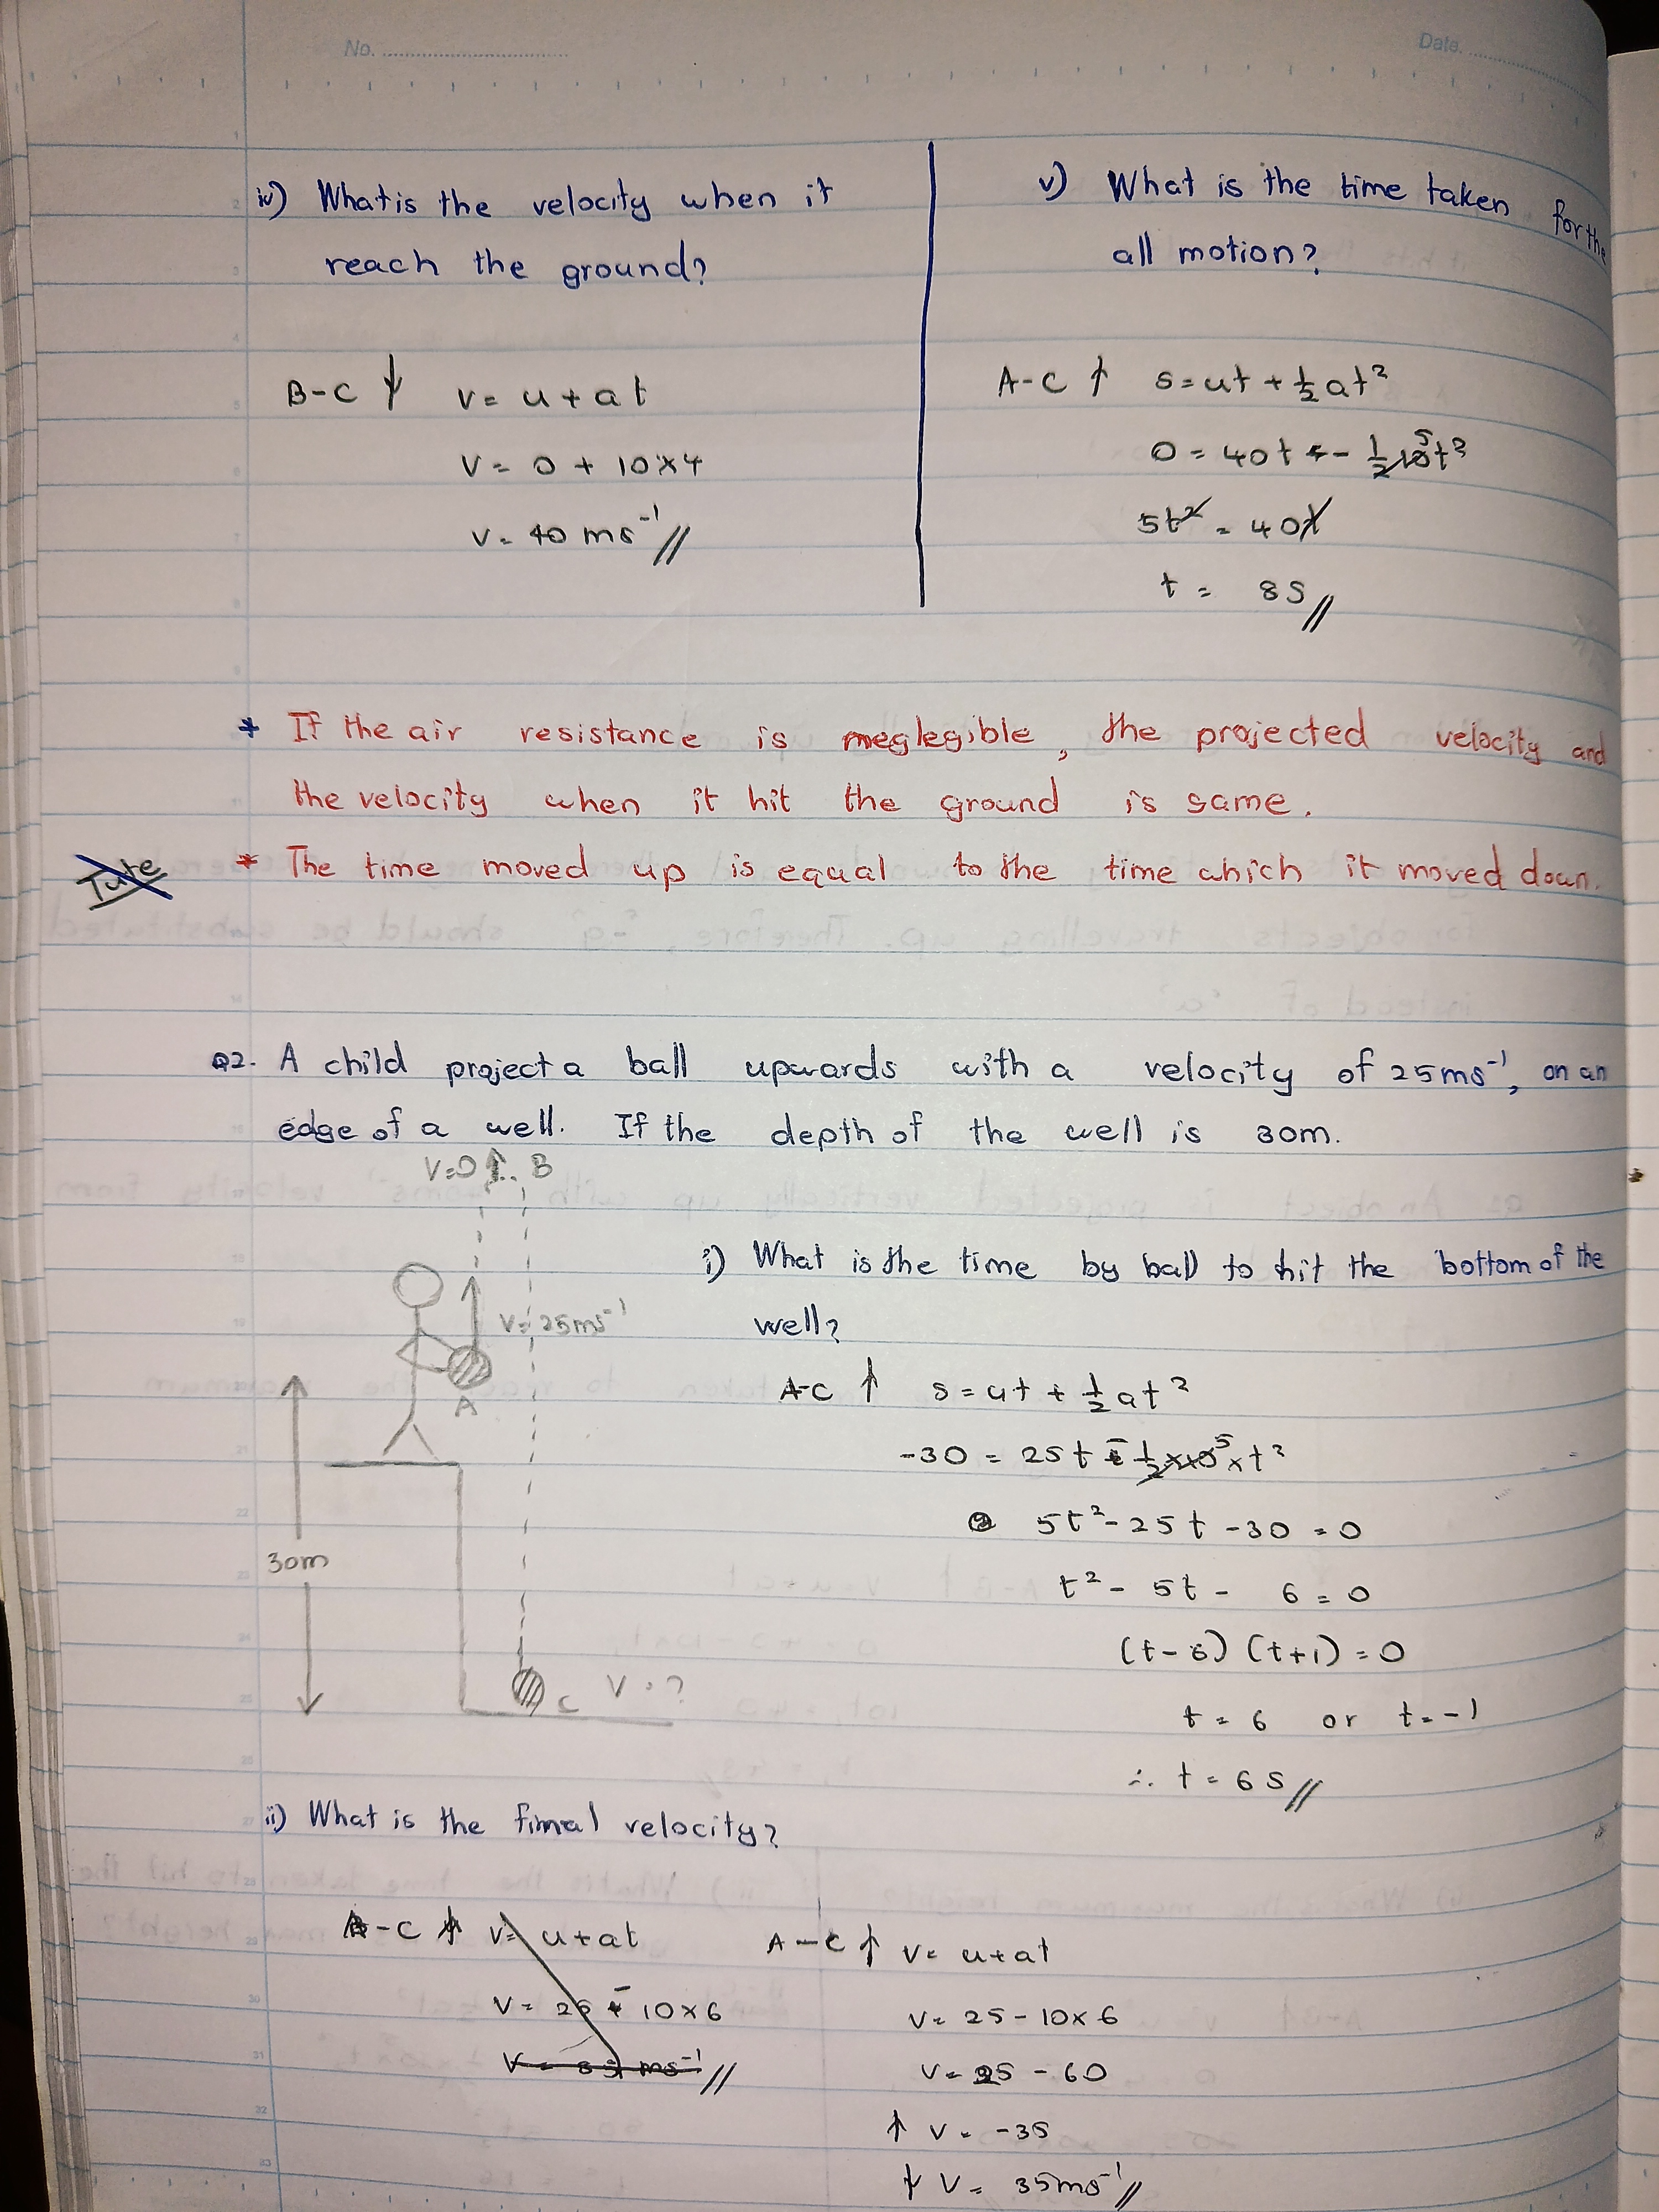 No.
Date.
iv) What is the velocity when it
reach the ground?
B-C ↓ v = u + at
v = 0 + 10×4
v = 40 ms⁻¹//
v) What is the time taken for the
all motion?
A-C ↑ s = ut + ½at²
0 = 40t - ½10t² 5
5t² = 40t
t = 8s//
* If the air resistance is meglegible, the projected velocity and
the velocity when it hit the ground is same.
Tute
* The time moved up is equal to the time which it moved down.
Q2. A child project a ball upwards with a velocity of 25ms⁻¹, on an
edge of a well. If the depth of the well is 30m.
V=0 B
V=25ms⁻¹
A
30m
C V=?
i) What is the time by ball to hit the bottom of the
well?
A-C ↑ s = ut + ½at²
-30 = 25t - ½×10×t² 5
5t² - 25t - 30 = 0
t² - 5t - 6 = 0
(t-6) (t+1) = 0
t = 6 or t = -1
∴ t = 6s//
ii) What is the final velocity?
-C ↑ v = u + at
V = 25 - 10×6
V = ms⁻¹//
A-C ↑ v = u + at
v = 25 - 10×6
v = 25 - 60
↑ v = -35
↓ v = 35ms⁻¹//